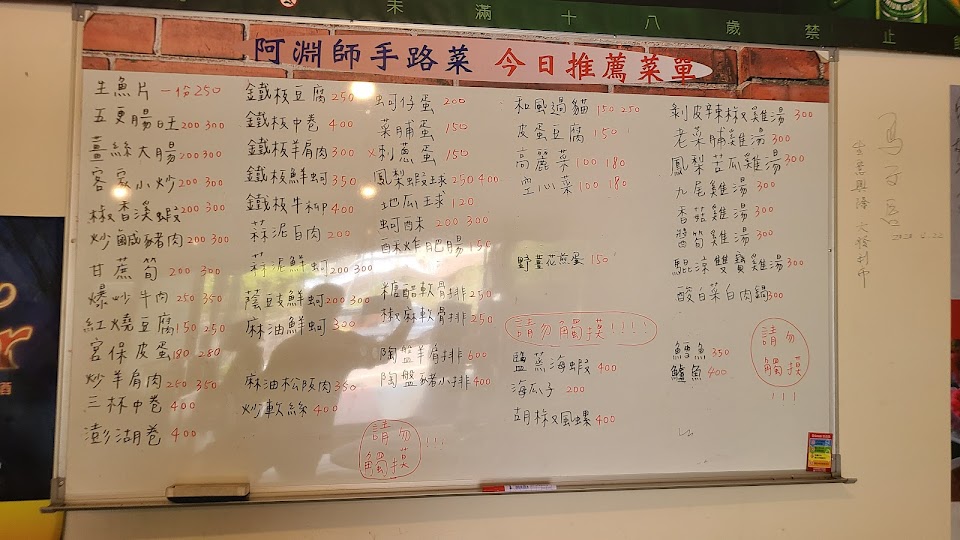 未滿十八歲禁止
阿淵師手路菜 今日推薦菜單
生魚片 一份250
五更腸旺 200 300
薑絲大腸 200 300
客家小炒 200 300
椒香溪蝦 200 300
炒鹹豬肉 200 300
甘蔗筍 200 300
爆炒牛肉 250 350
紅燒豆腐 150 250
宮保皮蛋 180 280
炒羊肩肉 250 350
三杯中卷 400
澎湖卷 400
鐵板豆腐 250
鐵板中卷 400
鐵板羊肩肉 300
鐵板鮮蚵 350
鐵板牛柳 400
蒜泥白肉 200
蒜泥鮮蚵 200 300
蔭豉鮮蚵 200 300
麻油鮮蚵 300
麻油松阪肉 350
炒軟絲 400
蚵仔蛋 200
菜脯蛋 150
x 刺蔥蛋 150
鳳梨蝦球 250 400
地瓜球 120
蚵酥 200 300
酥炸肥腸 150
糖醋軟骨排 250
椒麻軟骨排 250
陶盤羊肩排 600
陶盤豬小排 400
請勿
觸摸 !!!
和風過貓 150 250
皮蛋豆腐 150
高麗菜 100 180
空心菜 100 180
野薑花煎蛋 150
請勿觸摸!!!!
鹽蒸海蝦 400
海瓜子 200
胡椒風螺 400
剝皮辣椒雞湯 300
老菜脯雞湯 300
鳳梨苦瓜雞湯 300
九尾雞湯 300
香菇雞湯 300
醬筍雞湯 300
騜涼雙寶雞湯 300
酸白菜白肉鍋 300
鱈魚 350
鱸魚 400
請勿
觸摸
!!!
生意興隆 大發利市